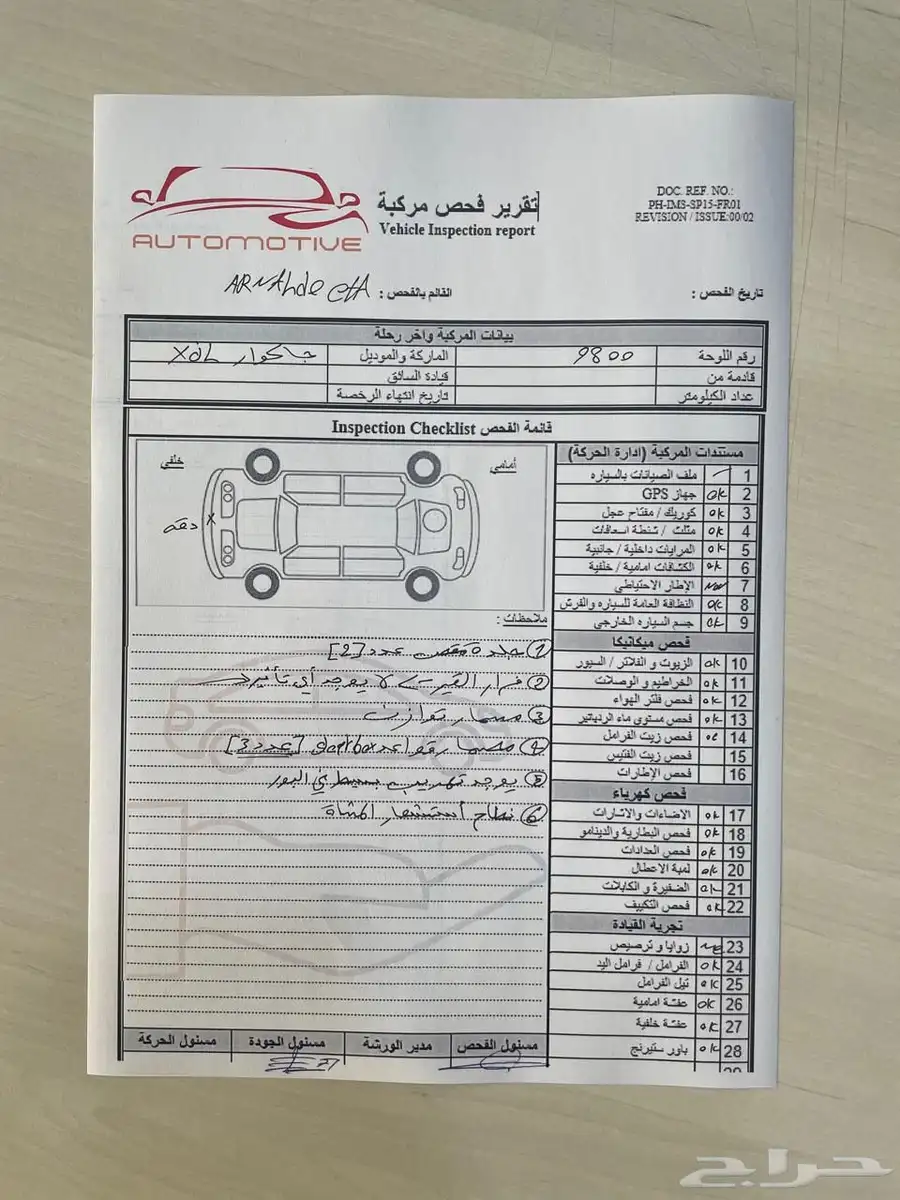 AUTOMOTIVE
تقرير فحص مركبة
Vehicle Inspection report
DOC. REF. NO.:
PH-IMS-SP15-FR01
REVISION / ISSUE:00/02
تاريخ الفحص :
القائم بالفحص :
بيانات المركبة واخر رحلة
رقم اللوحة 9800 الماركة والموديل جاكوار
قادمة من قيادة السائق
عداد الكيلومتر تاريخ انتهاء الرخصة
قائمة الفحص Inspection Checklist
أمامي
خلفي
x دقه
مستندات المركبة (ادارة الحركة)
1 ملف الصيانات بالسياره
2 ok جهاز GPS
3 ok كوريك / مفتاح عجل
4 ok مثلث / شنطة اسعافات
5 ok المرايات داخلية / جانبية
6 ok الكشافات امامية / خلفية
7 الإطار الاحتياطي
8 ok النظافة العامة للسياره والفرش
9 ok جسم السياره الخارجي
فحص ميكانيكا
10 ok الزيوت و الفلاتر / السيور
11 ok الخراطيم و الوصلات
12 ok فحص فلتر الهواء
13 ok فحص مستوي ماء الردياتير
14 فحص زيت الفرامل
15 فحص زيت الفتيس
16 فحص الإطارات
فحص كهرباء
17 ok الاضاءات والاشارات
18 ok فحص البطارية والدينامو
19 ok فحص العدادات
20 ok لمبة الاعطال
21 ok الضفيرة و الكابلات
22 ok فحص التكييف
تجربة القيادة
23 زوايا و ترصيص
24 ok الفرامل / فرامل اليد
25 ok تيل الفرامل
26 ok عفشة امامية
27 ok عفشة خلفية
28 ok باور ستيرنج
29
ملاحظات :
1 جلدة مقص عدد [2]
2 القير لا يوجد أي تأثير
3 مسمار توازن
4 gearbox [عدد 3]
5 يوجد تهريب بسيط في البور
6
مسئول الفحص مدير الورشة مسئول الجودة مسئول الحركة
حراج